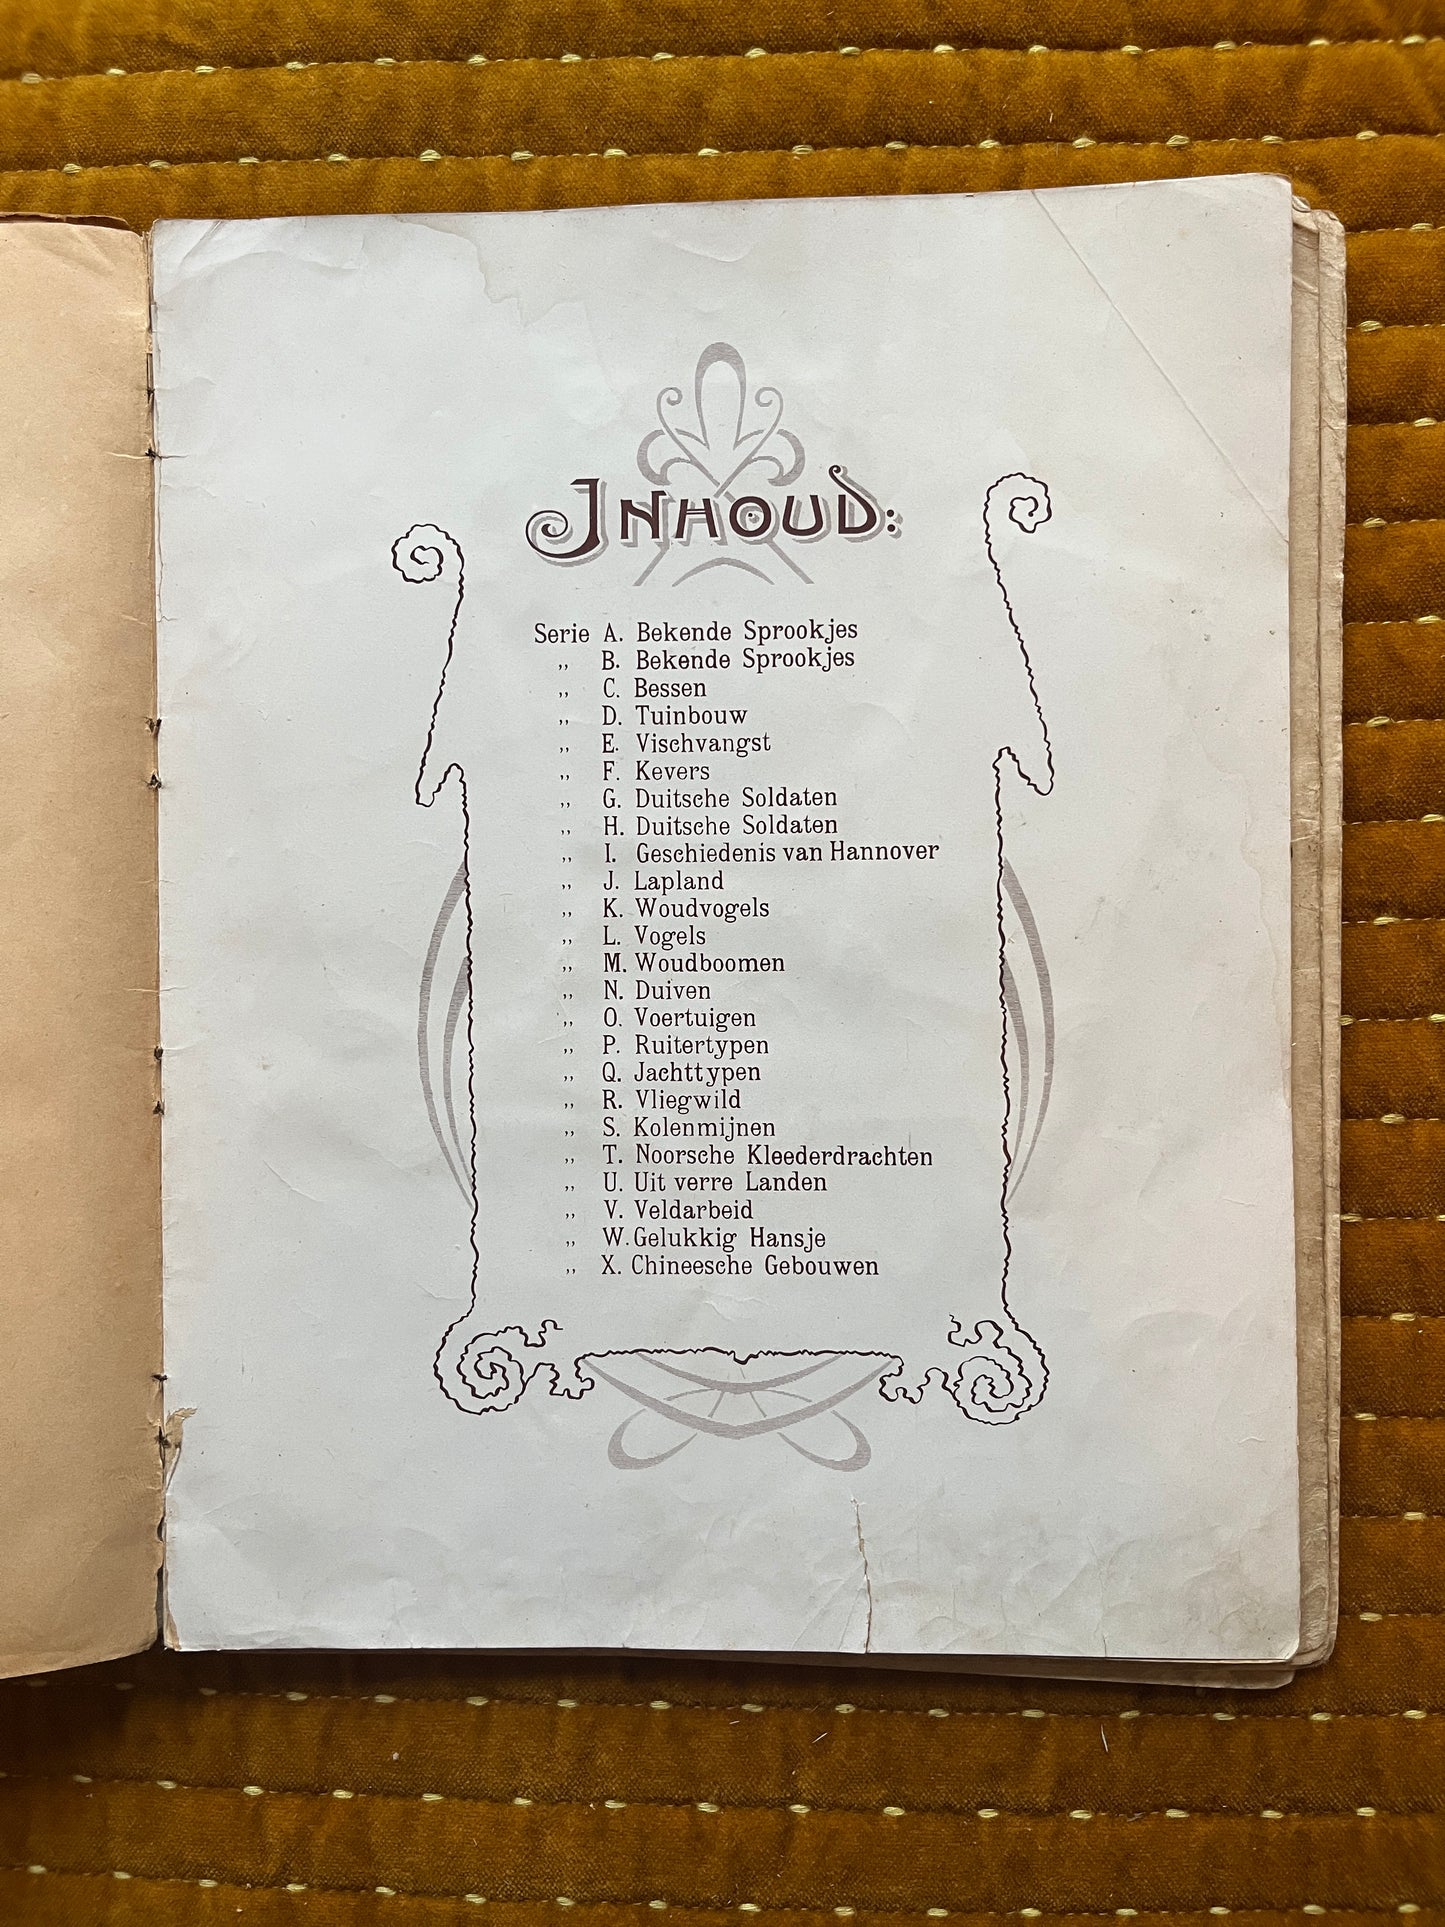 INHOUD:
Serie A. Bekende Sprookjes
„ B. Bekende Sprookjes
„ C. Bessen
„ D. Tuinbouw
„ E. Vischvangst
„ F. Kevers
„ G. Duitsche Soldaten
„ H. Duitsche Soldaten
„ I. Geschiedenis van Hannover
„ J. Lapland
„ K. Woudvogels
„ L. Vogels
„ M. Woudboomen
„ N. Duiven
„ O. Voertuigen
„ P. Ruitertypen
„ Q. Jachttypen
„ R. Vliegwild
„ S. Kolenmijnen
„ T. Noorsche Kleederdrachten
„ U. Uit verre Landen
„ V. Veldarbeid
„ W. Gelukkig Hansje
„ X. Chineesche Gebouwen